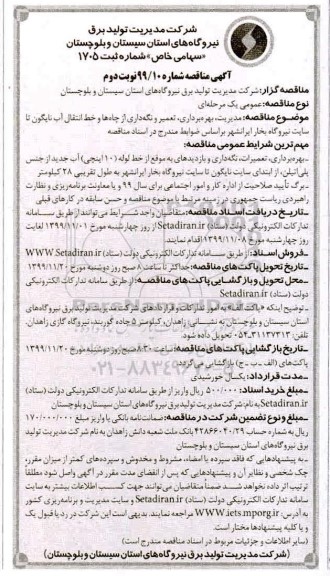 شرکت مدیریت تولید برق
نیروگاه‌های استان سیستان و بلوچستان
«سهامی خاص» شماره ثبت ۱۷۰۵
آگهی مناقصه شماره ۹۹/۱۰ نوبت دوم
مناقصه گزار: شرکت مدیریت تولید برق نیروگاه‌های استان سیستان و بلوچستان
نوع مناقصه: عمومی یک مرحله‌ای
موضوع مناقصه: مدیریت، بهره‌برداری، تعمیر و نگه‌داری از چاه‌ها و خط انتقال آب تایگون تا
سایت نیروگاه بخار ایرانشهر براساس ضوابط مندرج در اسناد مناقصه
مهم‌ترین شرایط عمومی مناقصه:
ـ بهره‌برداری، تعمیرات، نگه‌داری و بازدیدهای به موقع از خط لوله (۱۰ اینچی) آب جدید از جنس
پلی‌اتیلن، از ابتدای سایت تایگون تا سایت نیروگاه بخار ایرانشهر به طول تقریبی ۲۸ کیلومتر
ـ برگ تأیید صلاحیت از اداره کار و امور اجتماعی برای سال ۹۹ و یا معاونت برنامه‌ریزی و نظارت
راهبردی ریاست جمهوری در زمینه مرتبط با موضوع مناقصه و حسن سابقه در کارهای قبلی
ـ تاریخ دریافت اسناد مناقصه: متقاضیان واجد شرایط می‌توانند از طریق سامانه
تدارکات الکترونیکی دولت (ستاد) Setadiran.ir از روز چهارشنبه مورخ ۱۳۹۹/۱۱/۰۱ لغایت
روز چهارشنبه مورخ ۱۳۹۹/۱۱/۰۸ اقدام نمایند.
ـ فروش اسناد: از طریق سامانه تدارکات الکترونیکی دولت (ستاد) WWW.Setadiran.ir
ـ تاریخ تحویل پاکت‌های مناقصه: حداکثر تا ساعت ۸ صبح روز دوشنبه مورخ ۱۳۹۹/۱۱/۲۰
ـ محل تحویل و بازگشایی پاکت‌های مناقصه: از طریق سامانه تدارکات الکترونیکی
دولت (ستاد) Setadiran.ir
ـ توضیح اینکه «پاکت الف» به امور تدارکات و قراردادهای شرکت مدیریت تولید برق نیروگاه‌های
استان سیستان و بلوچستان به نشانی: زاهدان، کیلومتر ۵ جاده گوربند، نیروگاه گازی زاهدان،
تلفن: ۳۱۱۳۷۳۱۳-۰۵۴ تحویل داده شود.
ـ تاریخ بازگشایی پاکت‌های مناقصه: ساعت ۸:۳۰ صبح روز دوشنبه مورخ ۱۳۹۹/۱۱/۲۰
پاکت‌های (الف ـ ب ـ ج) بازگشایی می‌گردد.
ـ مدت قرارداد: یکسال خورشیدی
ـ مبلغ خرید اسناد: ۵۰۰/۰۰۰ ریال واریز از طریق سامانه تدارکات الکترونیکی دولت (ستاد)
Setadiran.ir به نام شرکت مدیریت تولید برق نیروگاه‌های استان سیستان و بلوچستان
ـ مبلغ و نوع تضمین شرکت در مناقصه: ضمانت‌نامه بانکی یا واریز مبلغ ۱۷۰/۰۰۰/۰۰۰
ریال به شماره حساب بانک ملت شعبه دانش زاهدان به نام شرکت مدیریت تولید
برق نیروگاه‌های استان سیستان و بلوچستان
ـ به پیشنهادهایی که فاقد سپرده یا امضاء، مشروط و مخدوش و سپرده‌های کمتر از میزان مقرر،
چک شخصی و نظایر آن و پیشنهادهایی که پس از انقضای مدت مقرر در آگهی واصل شود مطلقاً
ترتیب اثر داده نخواهد شد. ضمناً متقاضیان می‌توانند جهت کسب اطلاعات بیشتر به سایت
سامانه تدارکات الکترونیکی دولت (ستاد) Setadiran.ir و سایت مدیریت و برنامه‌ریزی کشور
به آدرس: WWW.iets.mporg.ir مراجعه نمایند. بدیهی است این شرکت در رد یا قبول یک
و یا کلیه پیشنهادها مختار است.
(سایر اطلاعات و جزئیات مربوط در اسناد مناقصه مندرج است)
(شرکت مدیریت تولید برق نیروگاه‌های استان سیستان و بلوچستان)